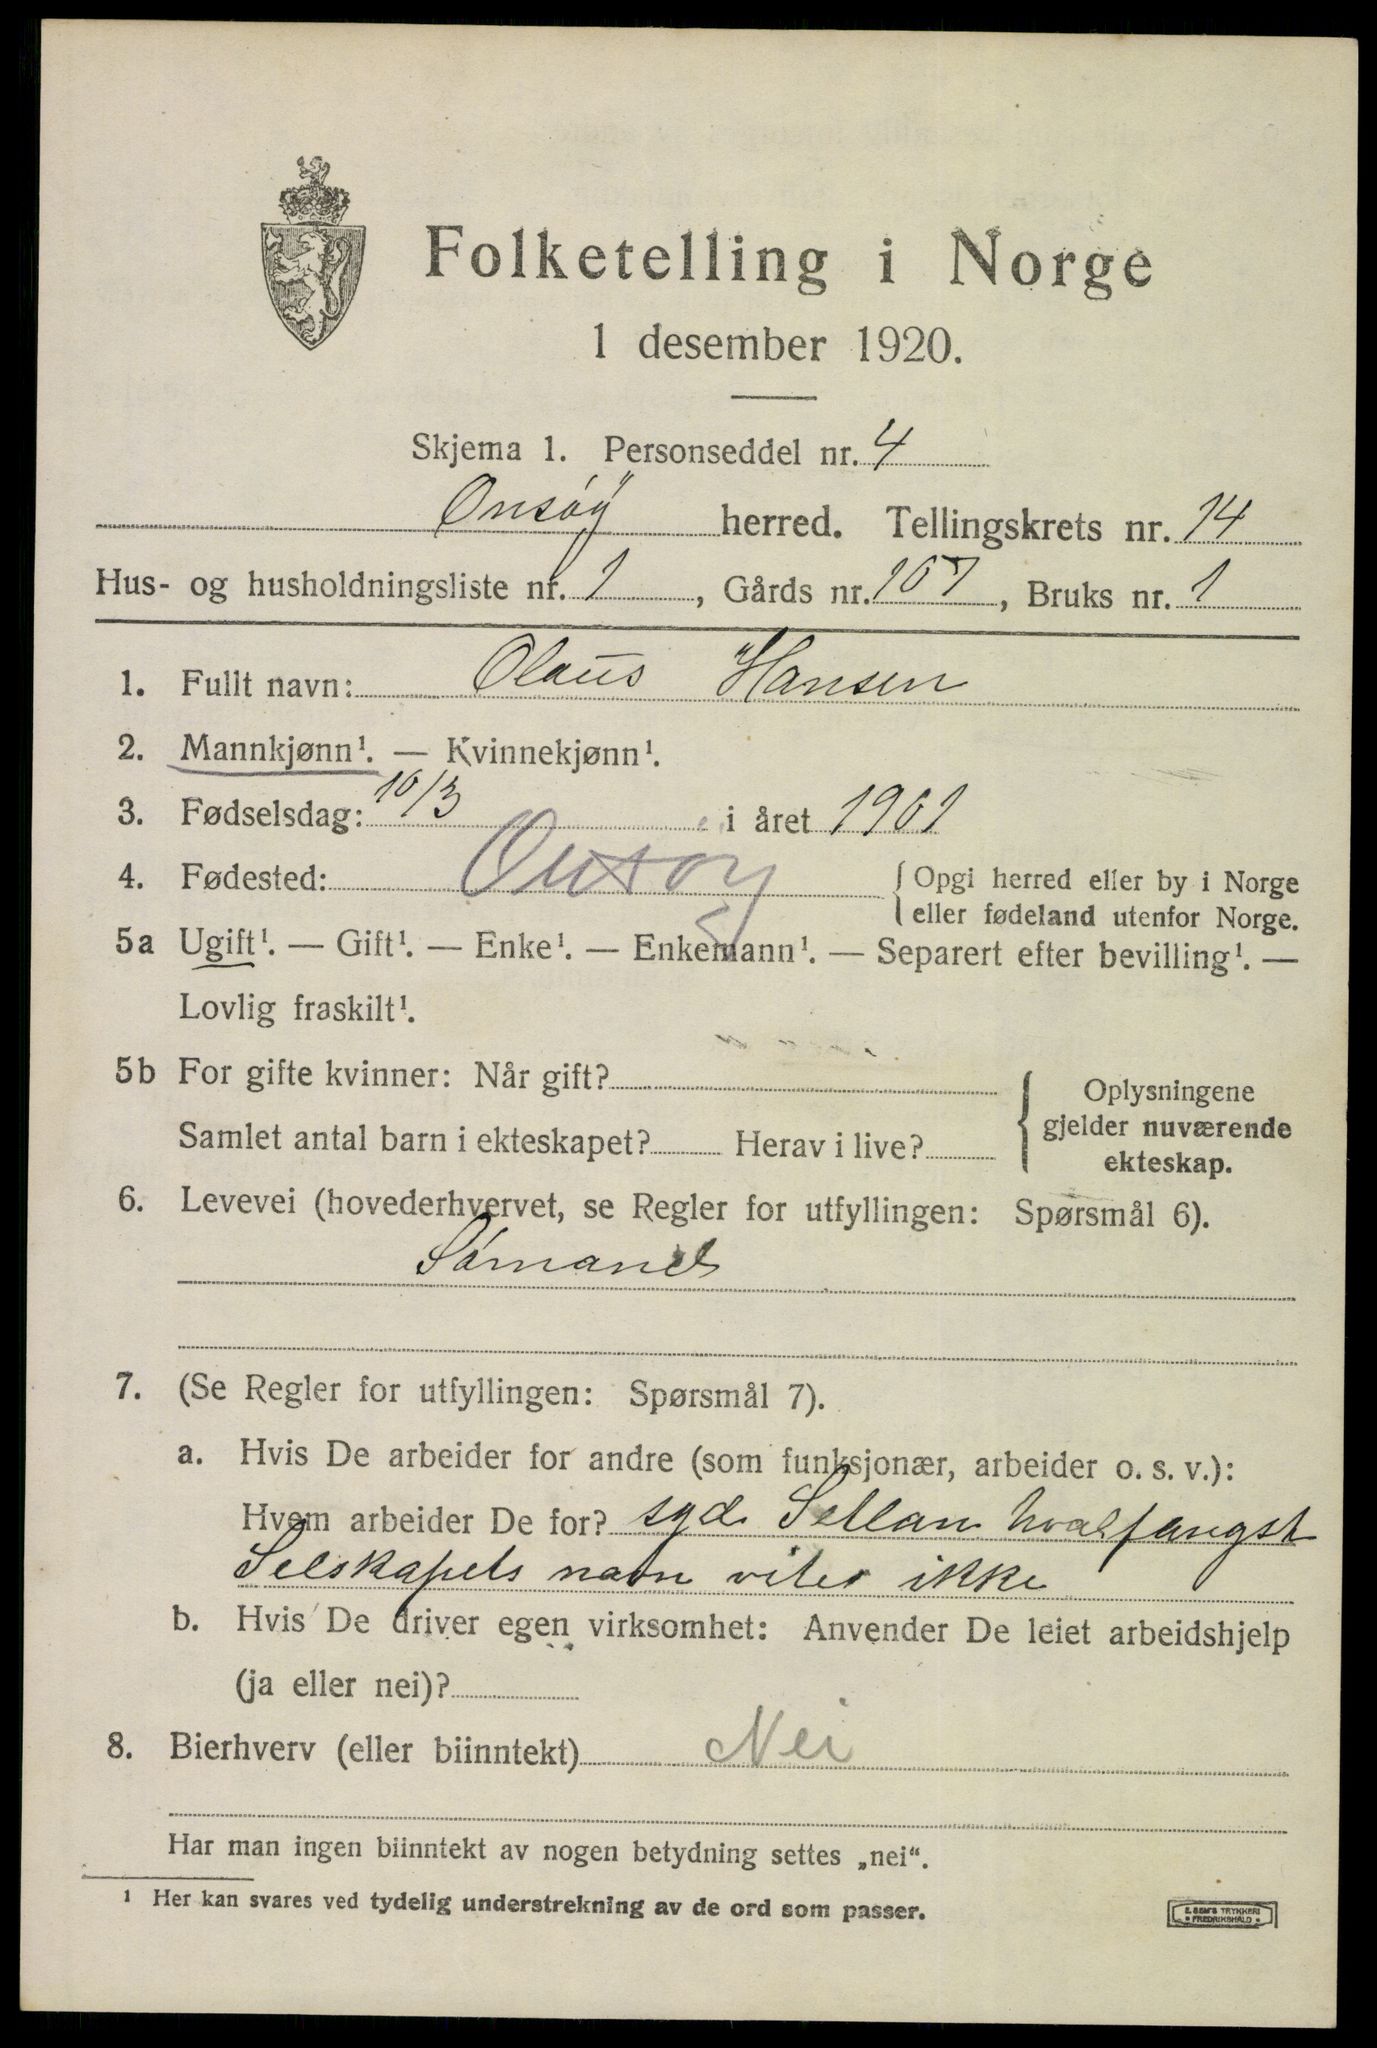 Folketelling i Norge
1 desember 1920.
Skjema 1. Personseddel nr. 4
Onsøy herred. Tellingskrets nr. 14
Hus- og husholdningsliste nr. 1, Gårds nr. 107, Bruks nr. 1
1. Fullt navn: Olaus Hansen
2. Mannkjønn¹. — Kvinnekjønn¹.
3. Fødselsdag: 10/3 i året 1901
4. Fødested: Onsøy { Opgi herred eller by i Norge
eller fødeland utenfor Norge.
5a Ugift¹. — Gift¹. — Enke¹. — Enkemann¹. — Separert efter bevilling¹. —
Lovlig fraskilt¹.
5b For gifte kvinner: Når gift?
Samlet antal barn i ekteskapet? Herav i live?
{ Oplysningene
gjelder nuværende
ekteskap.
6. Levevei (hovederhvervet, se Regler for utfyllingen: Spørsmål 6).
Sømand
7. (Se Regler for utfyllingen: Spørsmål 7).
a. Hvis De arbeider for andre (som funksjonær, arbeider o. s. v.):
Hvem arbeider De for? syd Setlan hvalfangst
Selskapets navn vites ikke
b. Hvis De driver egen virksomhet: Anvender De leiet arbeidshjelp
(ja eller nei)?
8. Bierhverv (eller biinntekt) Nei
Har man ingen biinntekt av nogen betydning settes „nei“.
¹ Her kan svares ved tydelig understrekning av de ord som passer.
E. SEM'S TRYKKERI
• FREDRIKSHALD •